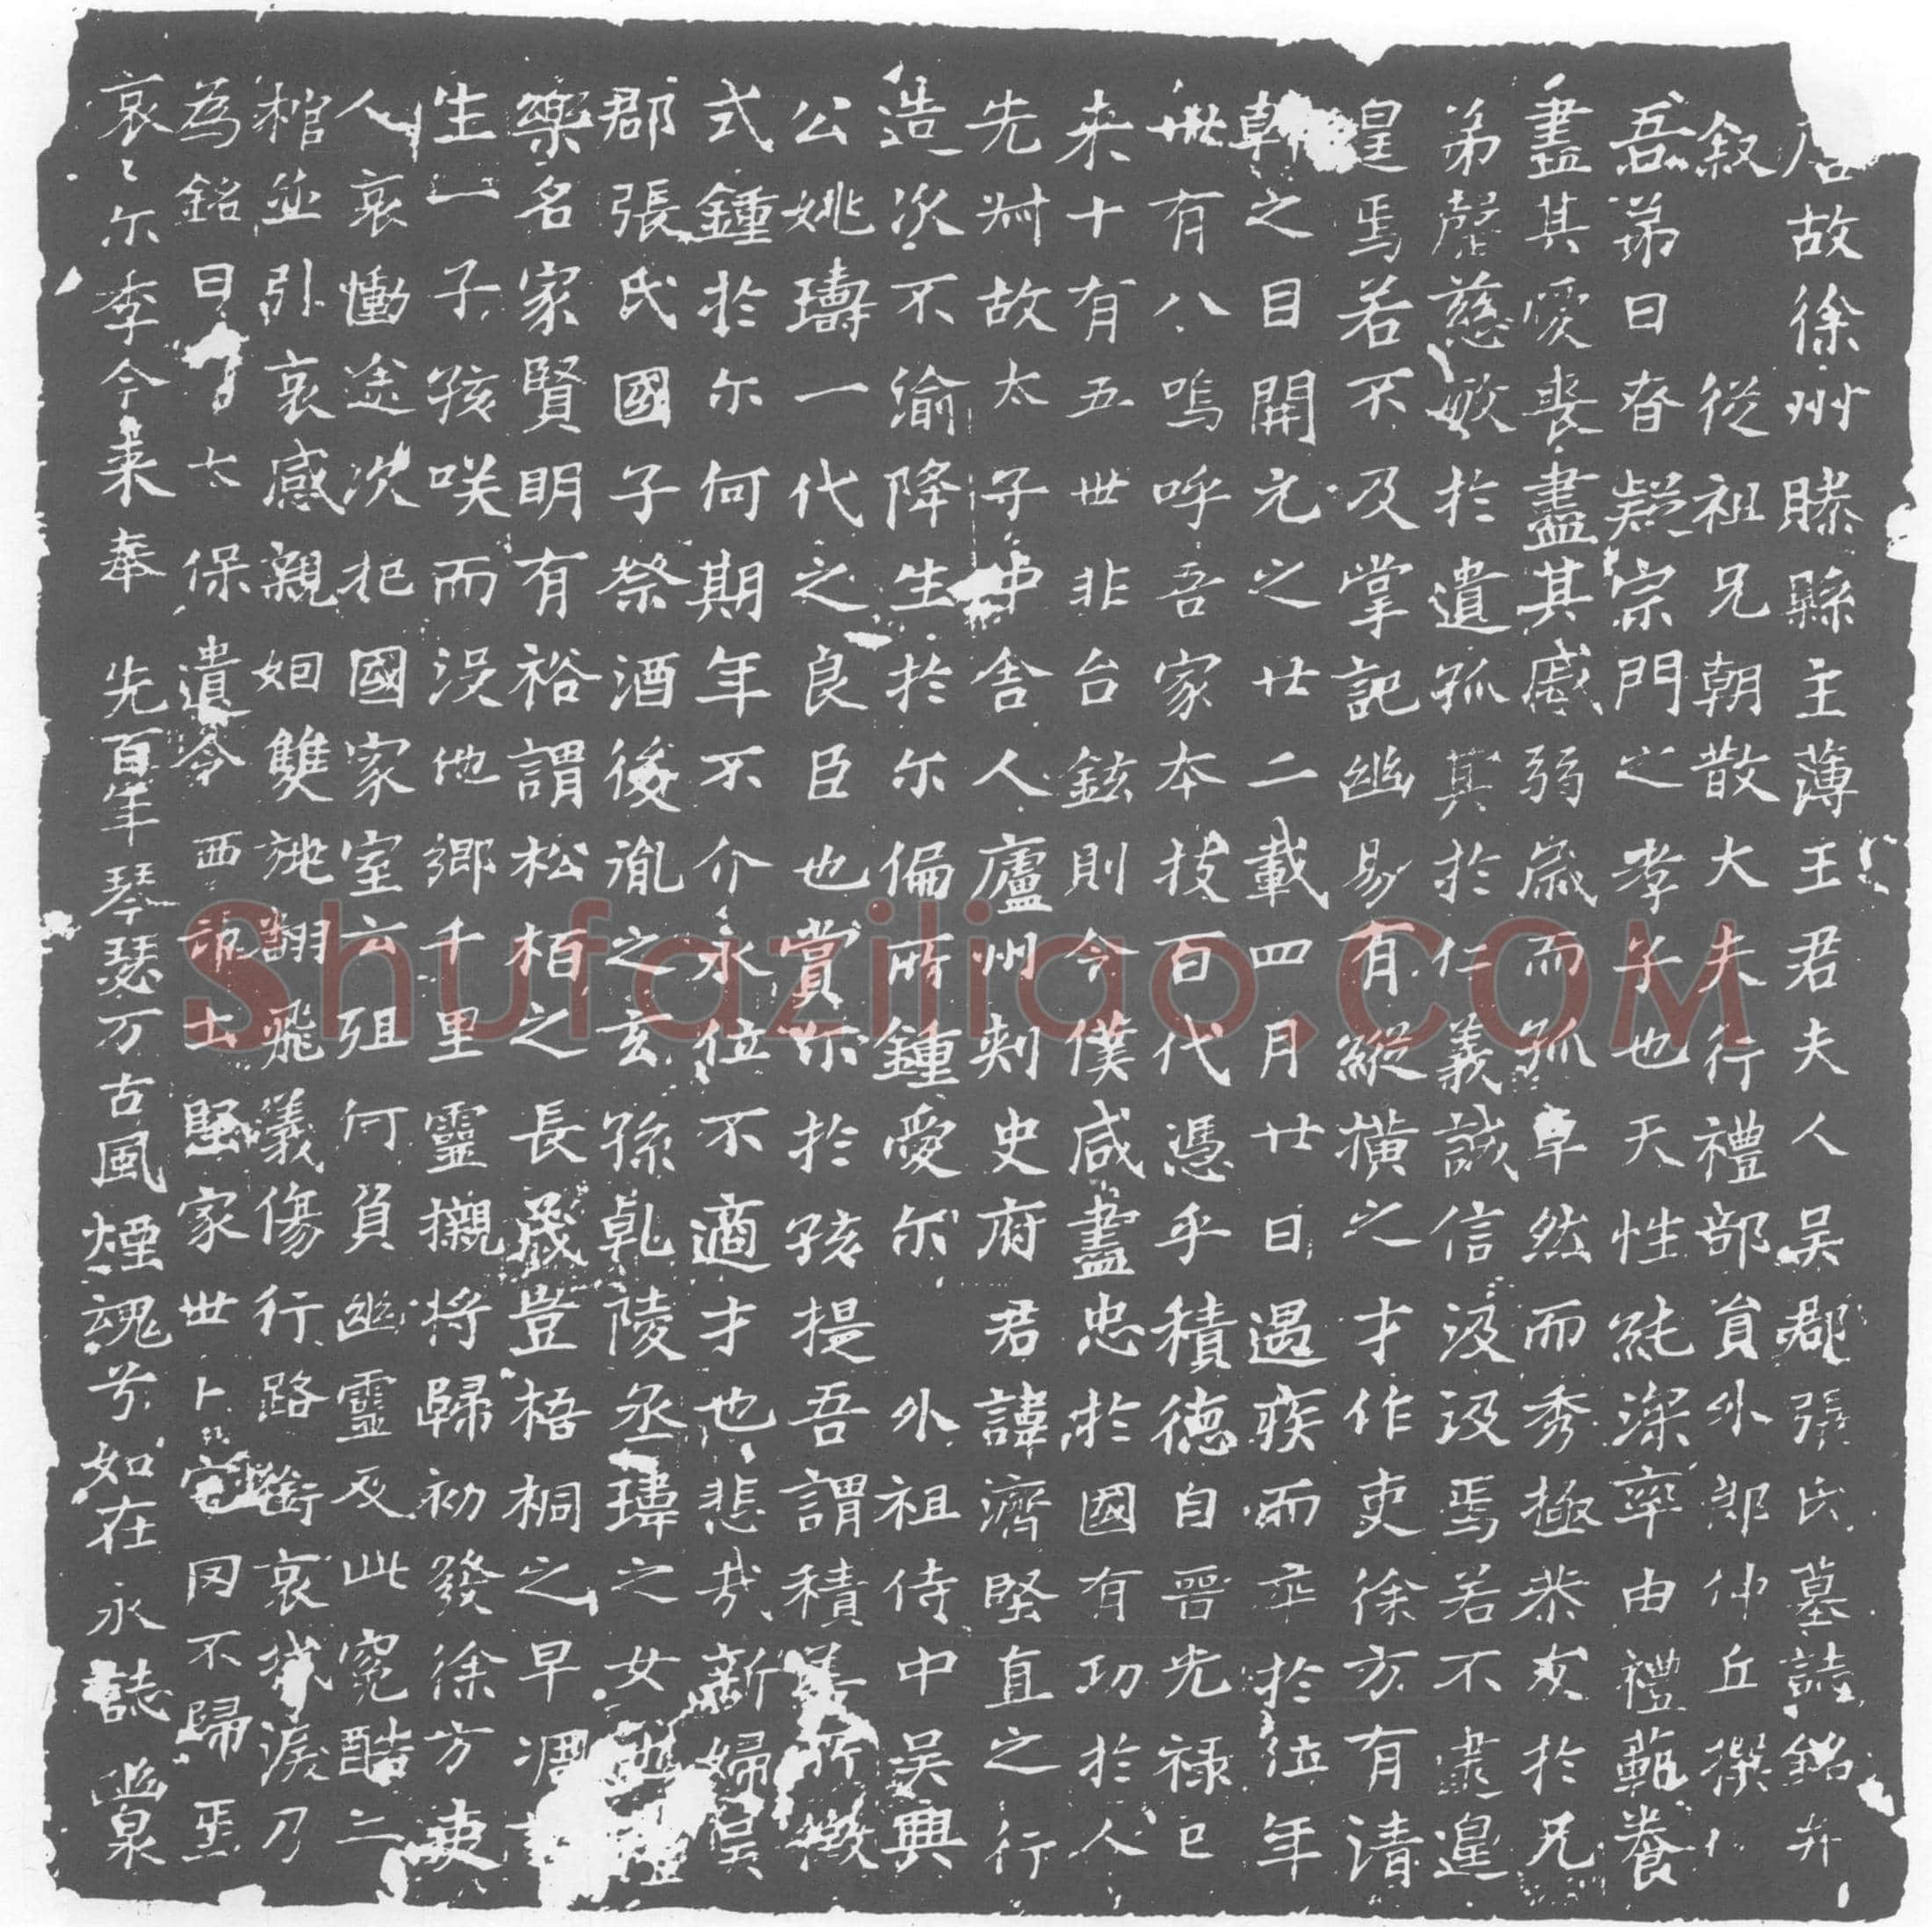 唐故徐州滕縣主薄王君夫人吴郡張氏墓誌銘并
叙 從祖兄朝散大夫行禮部員外郎仲丘撰
吾弟曰眘疑宗門之孝子也天性純深率由禮範養
盡其愛喪盡其慼弱歲而孤卓然而秀極恭友於兄
弟慈於遺孤其於仁義誠信汲汲焉若不遑
遑焉若不及掌記幽易有縱橫之才作吏徐方有清
幹之目開元之廿二載四月廿日遇疾而卒於位年
卌有八嗚呼吾家本技百代憑乎積德自晉光禄已
来十有五世非台鉉則今僕咸盡忠於國有功於人
先州故太子中舍人廬州刺史府君諱濟堅直之行
造次不渝降生於尔偏所鍾愛尔 外祖侍中吴興
公姚璹一代之良臣也賞尔於孩提吾謂積善所徵
式鍾於尔何期年不介永位不適才也悲哉新婦吴
郡張氏國子祭酒後胤之玄孫乹陵丞瑋之女
樂名家賢明有裕謂松栢之長歲豈梧桐之早凋
生一子孩咲而没他鄉千里靈櫬將歸初發徐方吏
人哀慟途次圯國家室云殂何負幽靈及此寃酷二
棺並引哀感親姻雙旐翻飛儀傷行路銜哀滅淚乃
為銘曰 太保遺令西 堅家世卜宅罔不歸焉
哀哀尔季今来奉 先百年琴瑟万古風煙魂兮如在永誌幽泉
Shufaziliao.COM